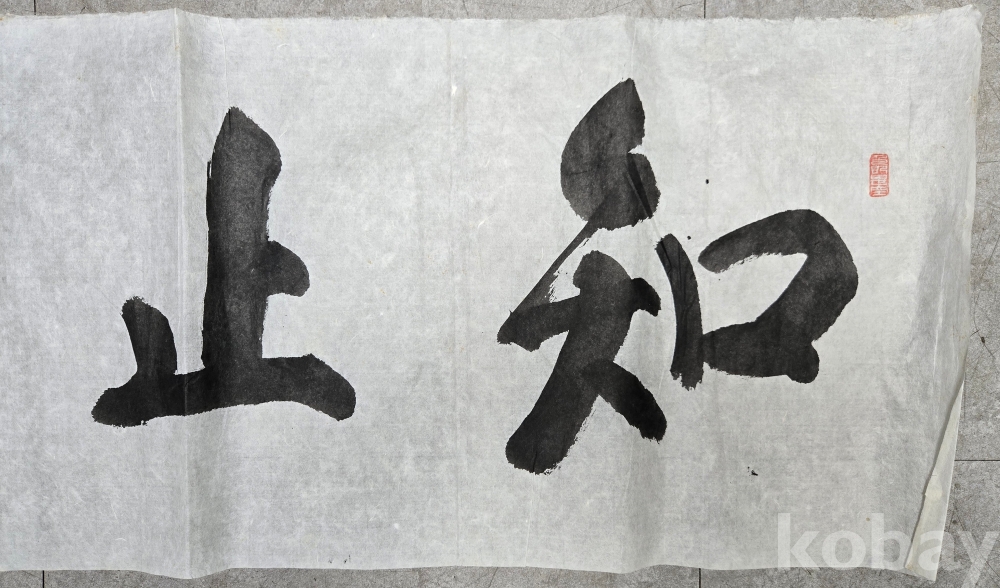 知止
kobay